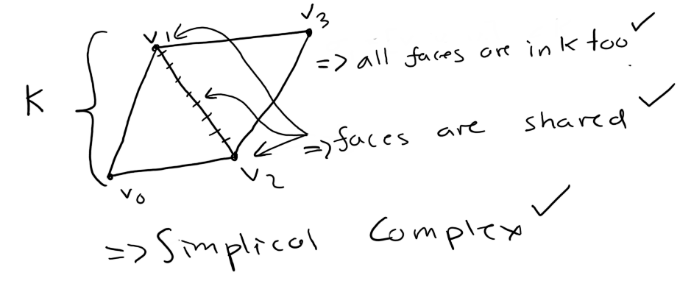 v3
v1
=> all faces are in k too ✓
K
=> faces are shared ✓
v2
v0
=> Simplical Complex ✓